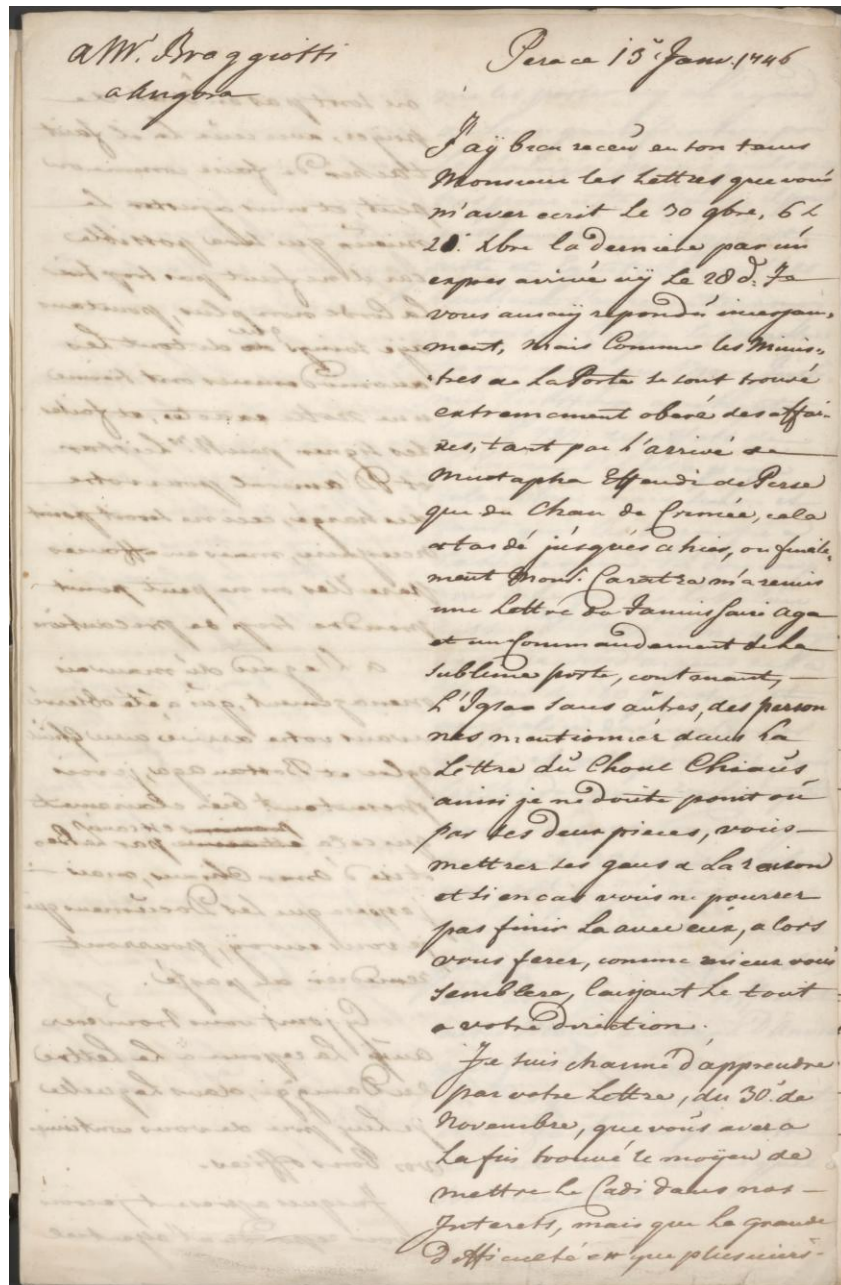 a Mr. Braggiotti
a Angora
Pera ce 15e Janv. 1746
J'aÿ bien receu en son tems
Monsieur les Lettres que vous
m'avez ecrit le 30 9bre, 6 &
21. Xbre la derniere par un
expres arrivé icÿ le 28 d. Je
vous auraÿ repondû incessam„
ment, mais Comme les Minis„
tres de La Porte se sont trouvé
extremement oberé des affai„
res, tant par l'arrivé de
Mustapha Effendi de Perse
que du Chan de Crimée, cela
a tardé jusques a hier, ou finale„
ment Monsr. Caratza m'a remis
une Lettre du Jannissaire Aga
et un Commandement de la
sublime porte, contenant,
L' sans aûtres, des person
nes mentionnér dans La
Lettre dû Choul Chiaûs
ainsi je ne doute point où
par ces deux pieces, vous
mettrez ses gens a La raison
et si en cas vous ne pourrez
pas finir La avec eux, alors
vous ferez, comme mieux vous
semblera, laissant le tout
a votre direction.
Je suis charmé d'apprendre
par votre Lettre, du 30. de
Novembre, que vous avez a
La fin trouvé le moÿen de
mettre le Cadi dans nos
Interets, mais que la grande
difficulté est que plusieurs